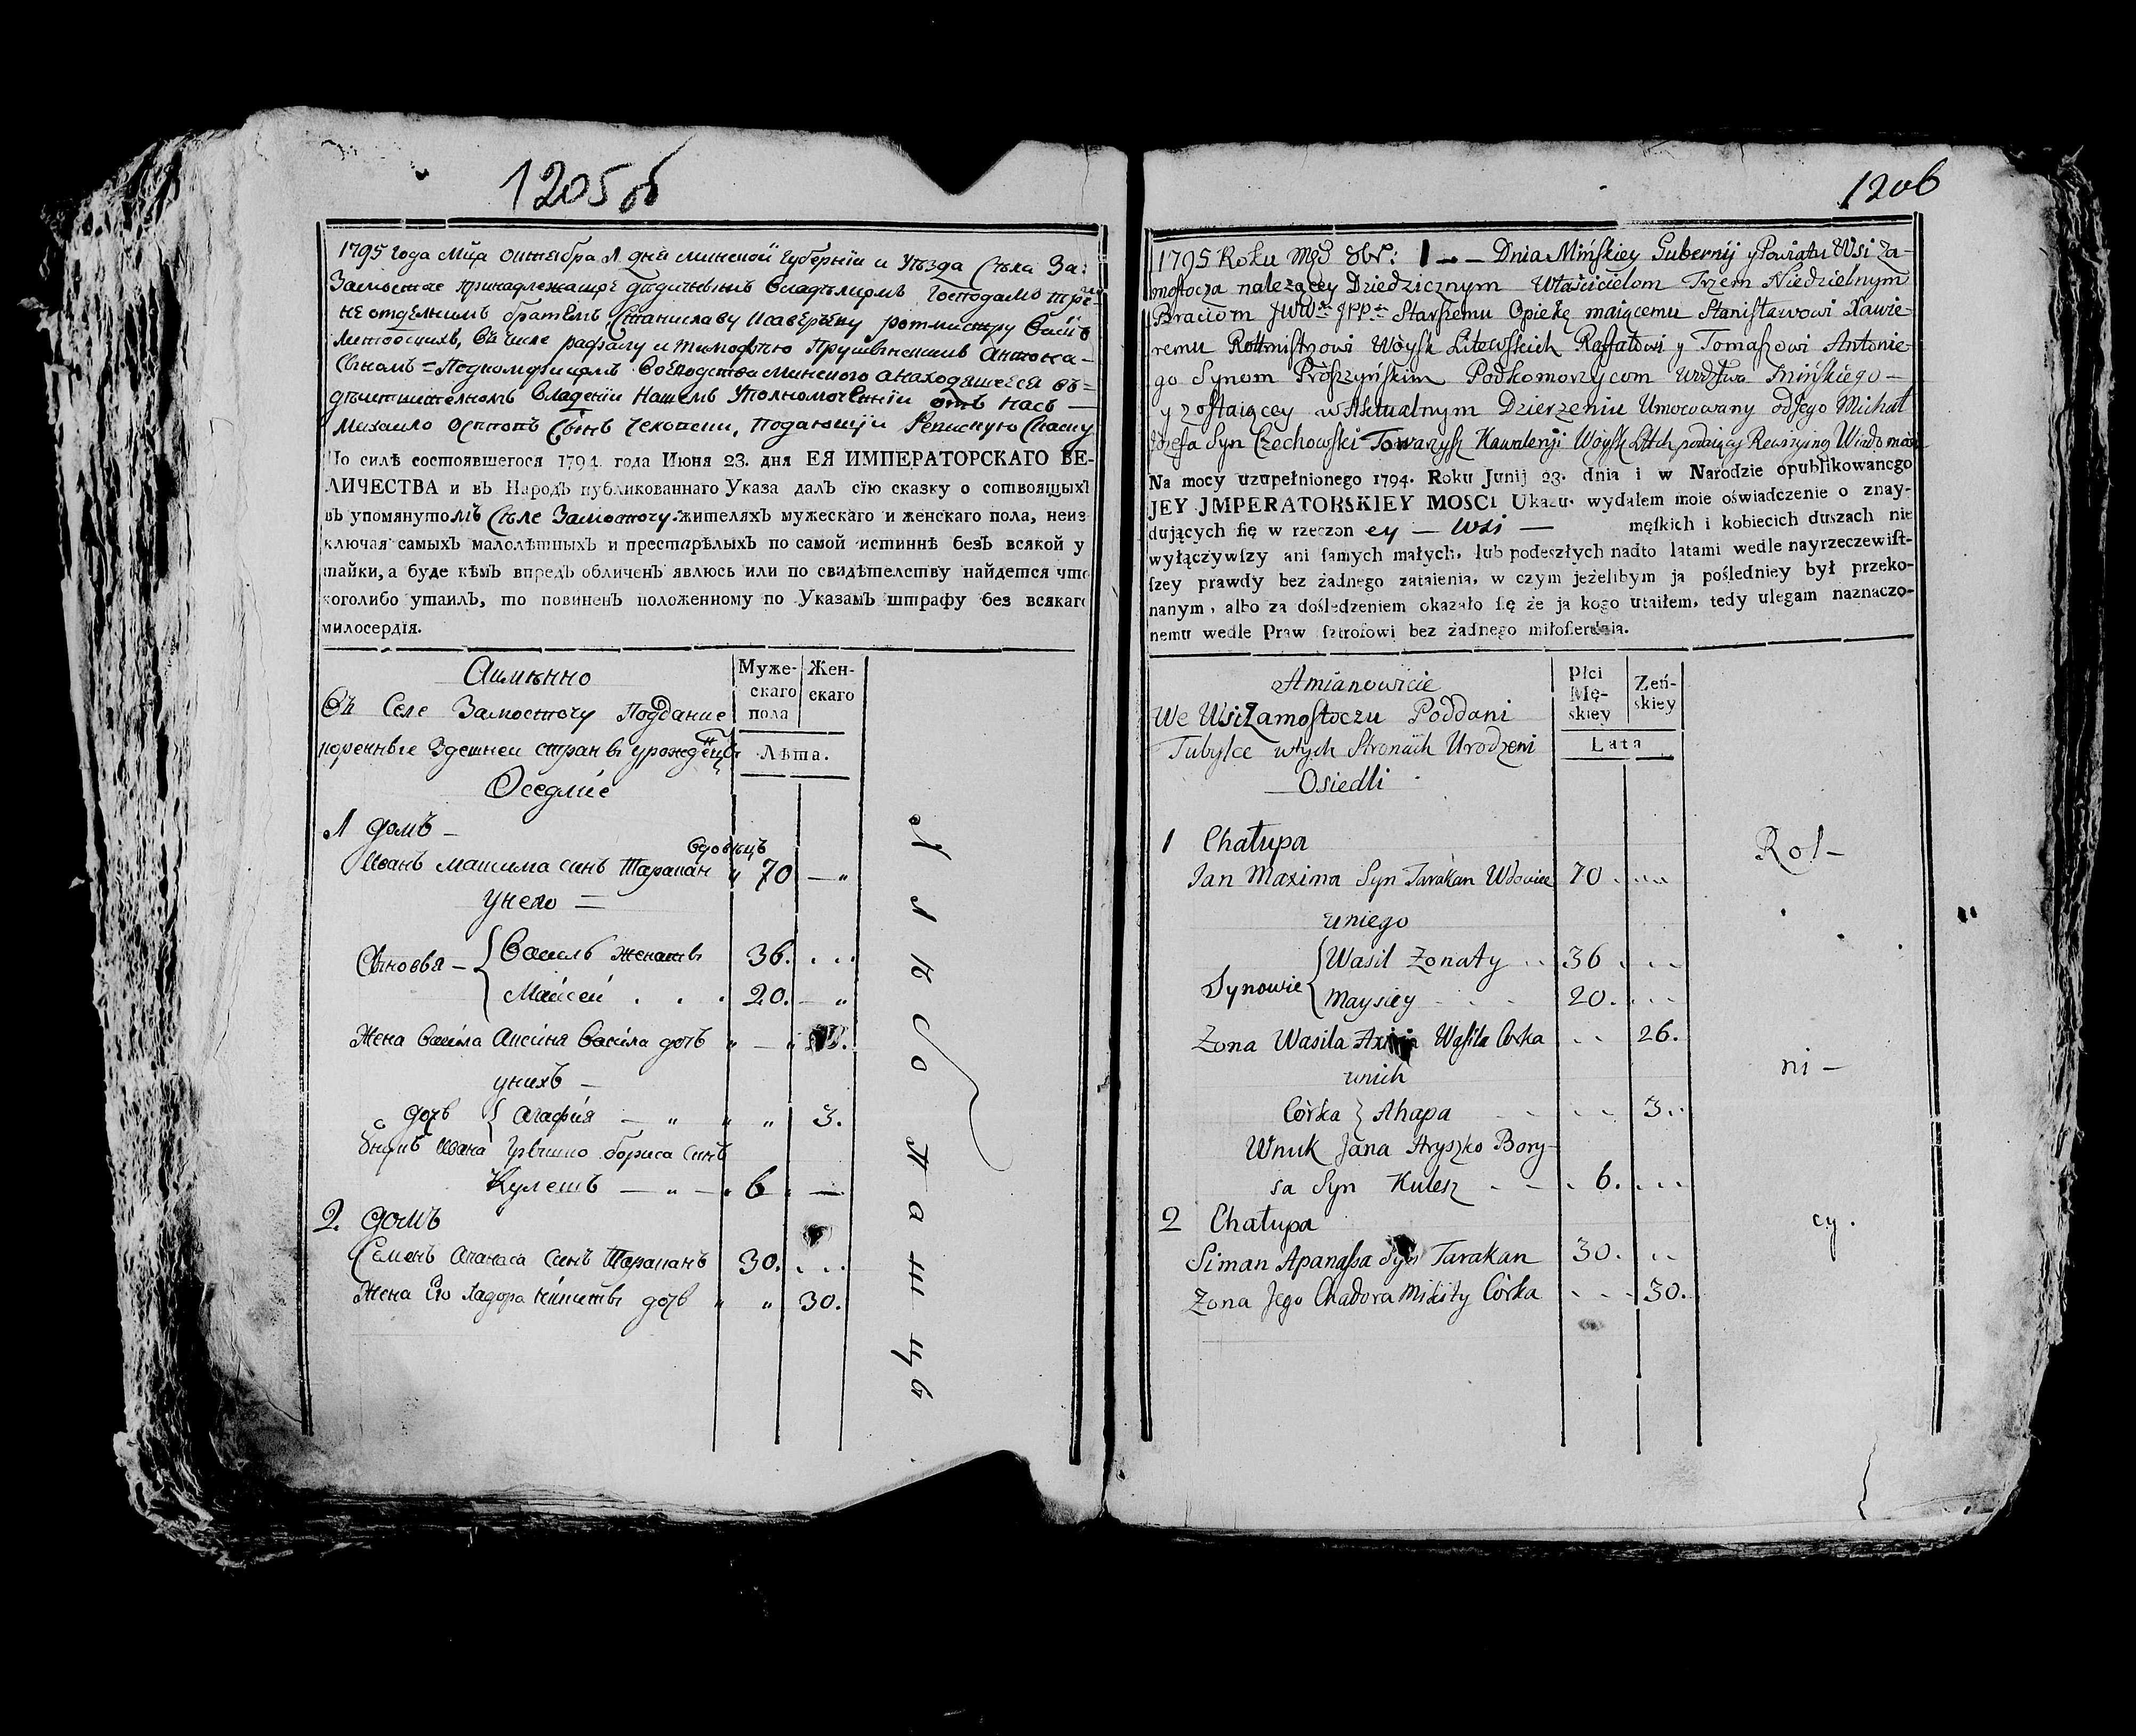 1205об
1795 года Мца Октября 1 дня Минской Губернїи и Уѣзда Села За-
Замосточе принадлежащее дѣдичнымъ Владѣлцомъ Господамъ трём
не отделнимъ братямъ Станиславу Ксаверѣему ротмистру Войскъ
Литовскихъ, въ числе рафалу и тимофѣю Прушинскимъ Антона-
Сынамъ = Подкоморицамъ Воеводства Минского а находящееся въ=
дѣиствителномъ Владѣнїи Нашемъ Уполномоченнїи отъ насъ —
Михаило Осиповъ Сынъ Чеховски, Подающїи Ревискую Скаску
По силѣ состоявшегося 1794. года Июня 23. дня ЕЯ ИМПЕРАТОРСКАГО ВЕ-
ЛИЧЕСТВА и въ Народъ публикованнаго Указа далъ сїю сказку о сотвоящыхъ
въ упомянутомъ Селе Замосточу жителяхъ мужескаго и женскаго пола, неиз
ключая самыхъ малолѣтныхъ и престарѣлыхъ по самой истиннѣ безъ всякой у
тайки, а буде кѣмъ впредь обличенъ явлюсь или по свидѣтелству найдется что
коголибо утаилъ, то повиненъ положенному по Указамъ штрафу без всякаго
милосердїя.
Аимянно
Муже-
скаго
пола
Жен-
скаго
Въ Селе Замосточу Поддание
коренные Здешнеи страны урожденцы
Лѣта.
Оседлие
1 домъ —
Вдовецъ
Иванъ Максима синъ Таракан „ 70 — „
унего =
Сынова — { Василь женаты 36. . . .
Майсеи . . . 20. — „
Жена Васила Аксиня Васила дочь „ — „
унихъ —
дочь { Агафїя — „ „ „ 3.
Внукъ Ивана Грышко бориса синъ
Кулешъ — „ — 6 . —
2. домъ
Семенъ Апанаса синъ Тараканъ 30. . . .
Жена Его Хадора Никиты дочь „ „ 30.
1206
1795 Roku Mca 8br: 1 - — Dnia Mińskiey Gubernij y Powiatu Wsi Za-
mostocza należącey Dziedzicznym Właścicielom Trzem Niedzielnym
Braciom JWWch JPPch Starszemu Opiekę maiącemu Stanisławowi Xawie-
remu Rottmistrzowi Woysk Litewskich Raffałowi y Tomaszowi Antonie-
go Synom Prószyńskim Podkomorzycom Wodztwa Mińskiego —
y zostaiącey w Aktualnym Dzierżeniu Umocowany od Jego Michał
Józefa Syn Czechowski Towarzysz Kawaleryi Woysk Litch podaiący Rewizyiną Wiadomość
Na mocy uzupełnionego 1794. Roku Junij 23. dnia i w Narodzie opublikowanego
JEY JMPERATORSKIEY MOSCI Ukazu. wydałem moie oświadczenie o znay-
dujących się w rzeczon ey — wsi — męſkich i kobiecich duszach nie
wyłączywſzy ani ſamych małych, lub podeszłych nadto latami wedle nayrzeczewiſt-
ſzey prawdy bez żadnego zataienia, w czym jeżelibym ja pośledniey był przeko-
nanym, albo za dośledzeniem okazało się że ja kogo utaiłem, tedy ulegam naznaczo-
nemu wedle Praw ſztrofowi bez żadnego miłoſierdzia.
Amianowicie
Płci
Mę-
skiey
Żeń-
skiey
We Wsi Zamostoczu Poddani
Tubylce w tych Stronach Urodzeni
Lata
Osiedli
1 Chałupa
Jan Maxima Syn Tarakan Wdowiec 70 . . . .
uniego
Synowie { Wasil Żonaty . . 36 . . .
Maysiey . . . 20. . . .
Żona Wasila Wasila Corka . . 26.
unich
Córka } Ahapa . . 3 . .
Wnuk Jana Hryszko Bory-
sa Syn Kulesz . . . 6. . . .
2 Chałupa
Siman Apanassa Syn Tarakan 30. . .
Żona Jego Chadora Mikity Córka . . . 30.
Rol-
ni -
cy.